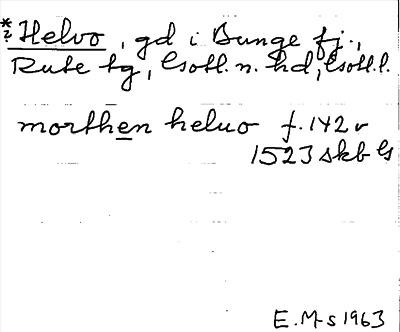 *? Helvo, gd i Bunge fj.,
Rute tg, Gotl. n. hd, Gotl. l.
morthen heluo f. 142 v
1523 skb G
E. M-s 1963